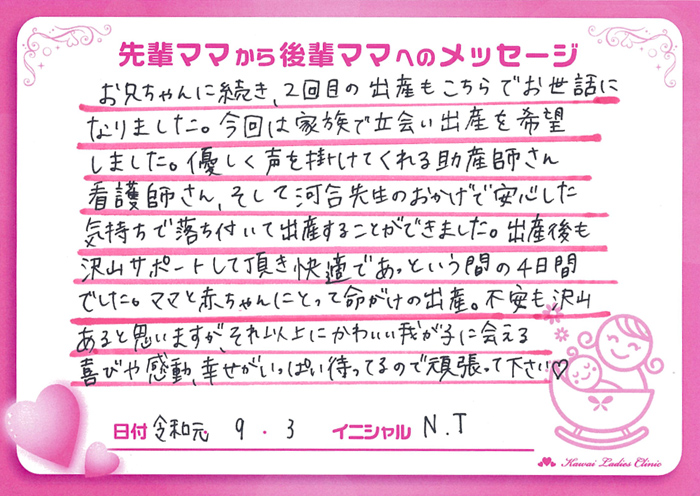 先輩ママから後輩ママへのメッセージ
お兄ちゃんに続き、2回目の出産もこちらでお世話に
なりました。今回は家族で立会い出産を希望
しました。優しく声を掛けてくれる助産師さん
看護師さん、そして河合先生のおかげで安心した
気持ちで落ち付いて出産することができました。出産後も
沢山サポートして頂き快適であっという間の4日間
でした。ママと赤ちゃんにとって命がけの出産。不安も沢山
あると思いますが、それ以上にかわいい我が子に会える
喜びや感動、幸せがいっぱい待ってるので頑張って下さい♡
日付 令和元 9 . 3 イニシャル N.T
Kawai Ladies Clinic